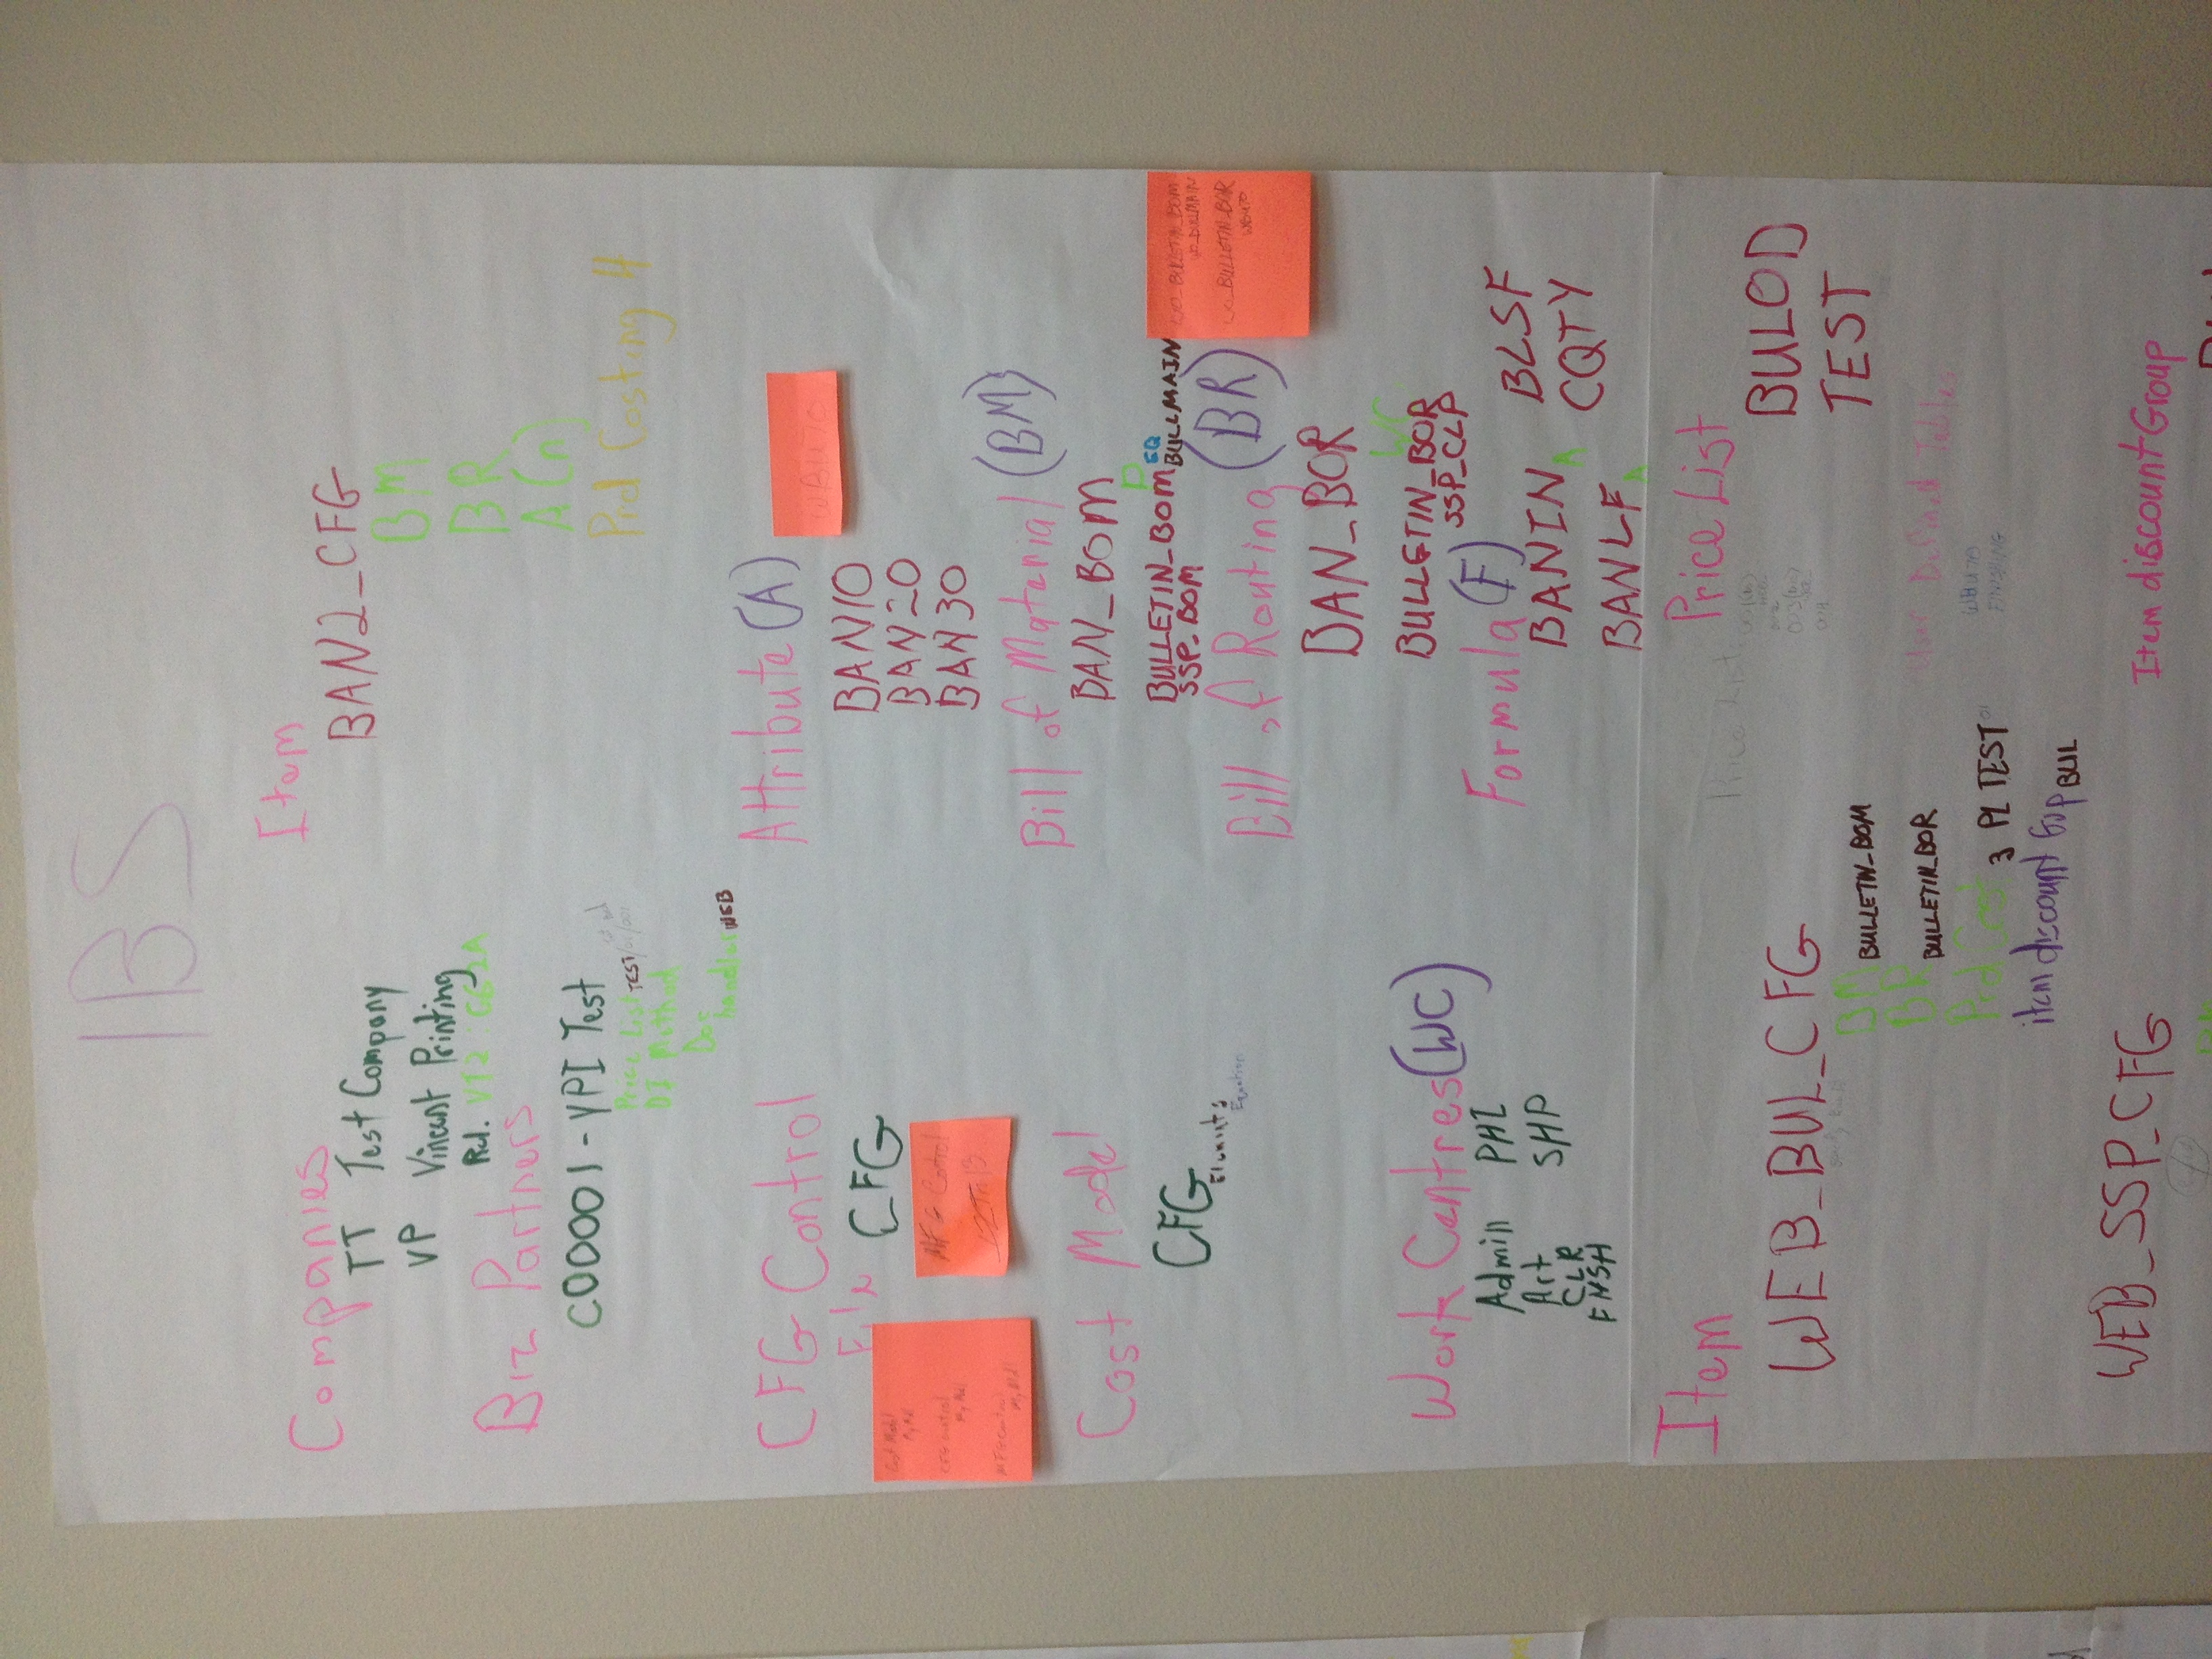 IBS
Companies
TT Test Company
VP Vincent Printing
Biz Partners
C00001 - VPI Test
Price List TEST
DI Method
Doc
handler WEB
CFG Control
File CFG
Cost Model
CFG Control
MFG Control
MFG Control
Cost Model
CFG
Elements
Equation
Work Centres (WC)
Admin PHI
Art SHP
CLR
FNSH
Item
BAN2_CFG
BM
BR
A(n)
Prd Costing 4
Attribute (A)
BAN10
BAN20
BAN30
Bill of Material (BM)
BAN_BOM
D
BULLETIN_BOM EQ BULLMAIN
SSP_BOM
WO_BULLETIN_BOM
WO_BULLETIN_BOR
Bill of Routing (BR)
BAN_BOR
WC
BULLETIN_BOR
SSP_CLP
Formula (F)
BANIN A BLSF
BANLF A CQTY
Item
WEB_BUL_CFG
BM BULLETIN_BOM
BR BULLETIN_BOR
Prd Cost 3 PL TEST 01
item discount Grp BUL
WEB_SSP_CFG
Price List
Price List
BULOD
TEST
User Defined Tables
FINISHING
Item discount Group